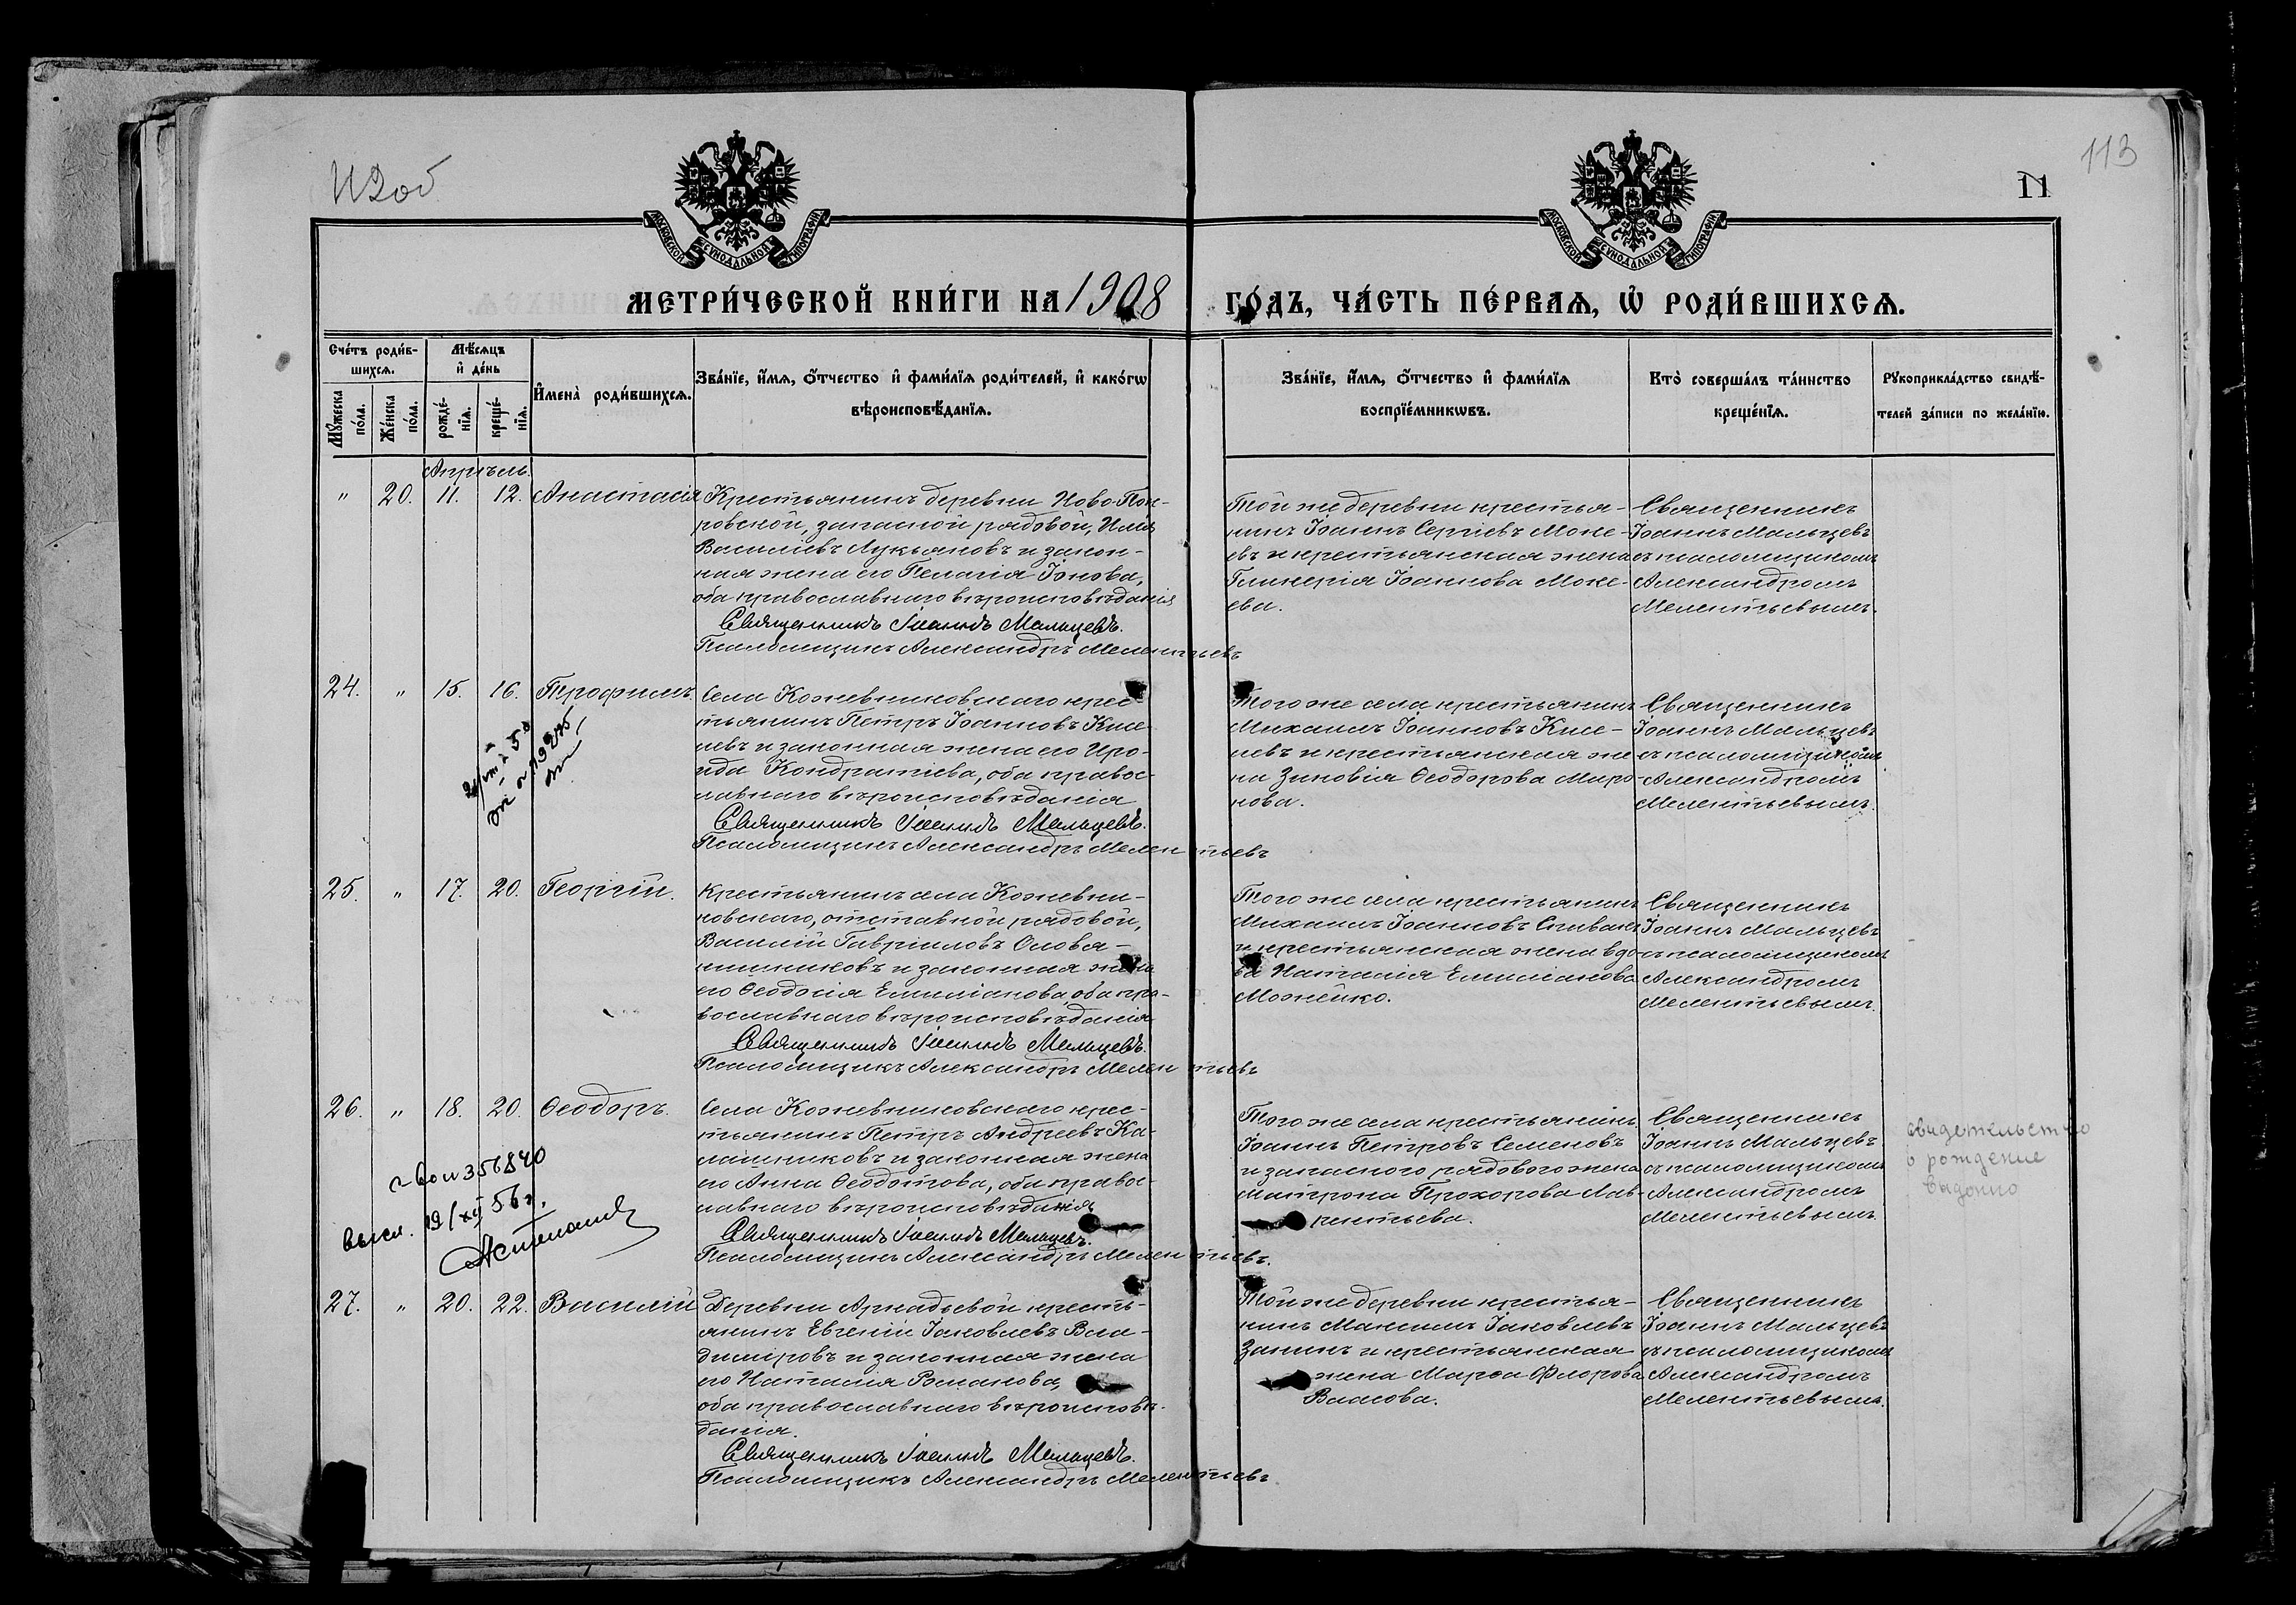 113
11
МОСКОВСКОЙ СѴНОДАЛЬНОЙ ТИПОГРАФІИ
МОСКОВСКОЙ СѴНОДАЛЬНОЙ ТИПОГРАФІИ
МЕТРИ́ЧЕСКОЙ КНИ́ГИ НА 1908 ГО́ДЪ, ЧА́СТЬ ПЕ́РВАѦ, Ѡ҆ РОДИ́ВШИХСѦ.
Сче́тъ роди́в-
шихсѧ.
Мꙋ́жеска по́ла.
Же́нска по́ла.
Мѣ́сѧцъ
и҆ де́нь
рожде́-
нїѧ.
креще́-
нїѧ.
И҆мена̀ роди́вшихсѧ.
Зва́нїе, и҆́мѧ, ѻ҆́тчество и҆ фами́лїѧ роди́телей, и҆ како́гѡ
вѣроисповѣ́данїѧ.
Зва́нїе, и҆́мѧ, ѻ҆́тчество и҆ фами́лїѧ
воспрїе́мникѡвъ.
Кто̀ соверша́лъ та́инство
креще́нїѧ.
Рꙋкоприкла́дство свидѣ́-
телей за́писи по жела́нїю.
Апрѣль.
" 20. 11. 12. Анастасія
Крестьянинъ деревни Ново-Пок-
ровской, запасной рядовой, Илія
Василіевъ Лукьяновъ и закон-
ная жена его Пелагія Іонова,
оба православнаго вѣроисповѣданія
Священникъ Іоаннъ Мальцевъ.
Псаломщикъ Александръ Мелентьевъ
Той же деревни крестья-
нинъ Іоаннъ Сергіевъ Моке-
евъ и крестьянская жена
Гликерія Іоаннова Моке-
ева.
Священникъ
Іоаннъ Мальцевъ
съ псаломщикомъ
Александромъ
Мелентьевымъ.
24. " 15. 16. Трофимъ.
Села Кожевниковскаго крес-
тьянинъ Петръ Іоанновъ Кисе-
левъ и законная жена его Иро-
ида Кондратіева, оба правос-
лавнаго вѣроисповѣданія
Священникъ Іоаннъ Мальцевъ.
Псаломщикъ Александръ Мелентьевъ
Того же села крестьянинъ
Михаилъ Іоанновъ Кисе-
левъ и крестьянская же
на Зиновія Ѳеодорова Миро-
нова.
Священникъ
Іоаннъ Мальцевъ
съ псаломщикомъ
Александромъ
Мелентьевымъ.
25. " 17. 20. Георгій.
Крестьянинъ села Кожевни-
ковскаго, отставной рядовой,
Василій Гавріиловъ Оловя-
нишниковъ и законная жена
его Ѳеодосія Емиліанова, оба пра-
вославнаго вѣроисповѣданія
Священникъ Іоаннъ Мальцевъ.
Псаломщикъ Александръ Мелентьевъ
Того же села крестьянинъ
Михаилъ Іоанновъ Спивакъ
и крестьянская жена вдо-
ва Наталія Емиліанова
Можейко.
Священникъ
Іоаннъ Мальцевъ
съ псаломщикомъ
Александромъ
Мелентьевымъ.
26. " 18. 20. Ѳеодоръ.
Села Кожевниковскаго крес-
тьянинъ Петръ Андреевъ Ка-
лашниковъ и законная жена
его Анна Ѳеодотова, оба правос-
лавнаго вѣроисповѣданія
Священникъ Іоаннъ Мальцевъ.
Псаломщикъ Александръ Мелентьевъ.
356840
высл. 19/XII 56 г.
Того же села крестьянинъ
Іоаннъ Петровъ Семеновъ
и запасного рядового жена
Матрона Прохорова Лав-
рентьева.
Священникъ
Іоаннъ Мальцевъ
съ псаломщикомъ
Александромъ
Мелентьевымъ.
свидетельство
о рождение
выдонно
27. " 20. 22. Василій
Деревни Аркадьевой кресть-
янинъ Евгеній Іаковлевъ Вла-
диміровъ и законная жена
его Наталія Романова,
оба православнаго вѣроисповѣ-
данія.
Священникъ Іоаннъ Мальцевъ.
Псаломщикъ Александръ Мелентьевъ
Той же деревни крестья-
нинъ Максимъ Іаковлевъ
Занинъ и крестьянская
жена Марѳа Флорова
Власова.
Священникъ
Іоаннъ Мальцевъ
съ псаломщикомъ
Александромъ
Мелентьевымъ.